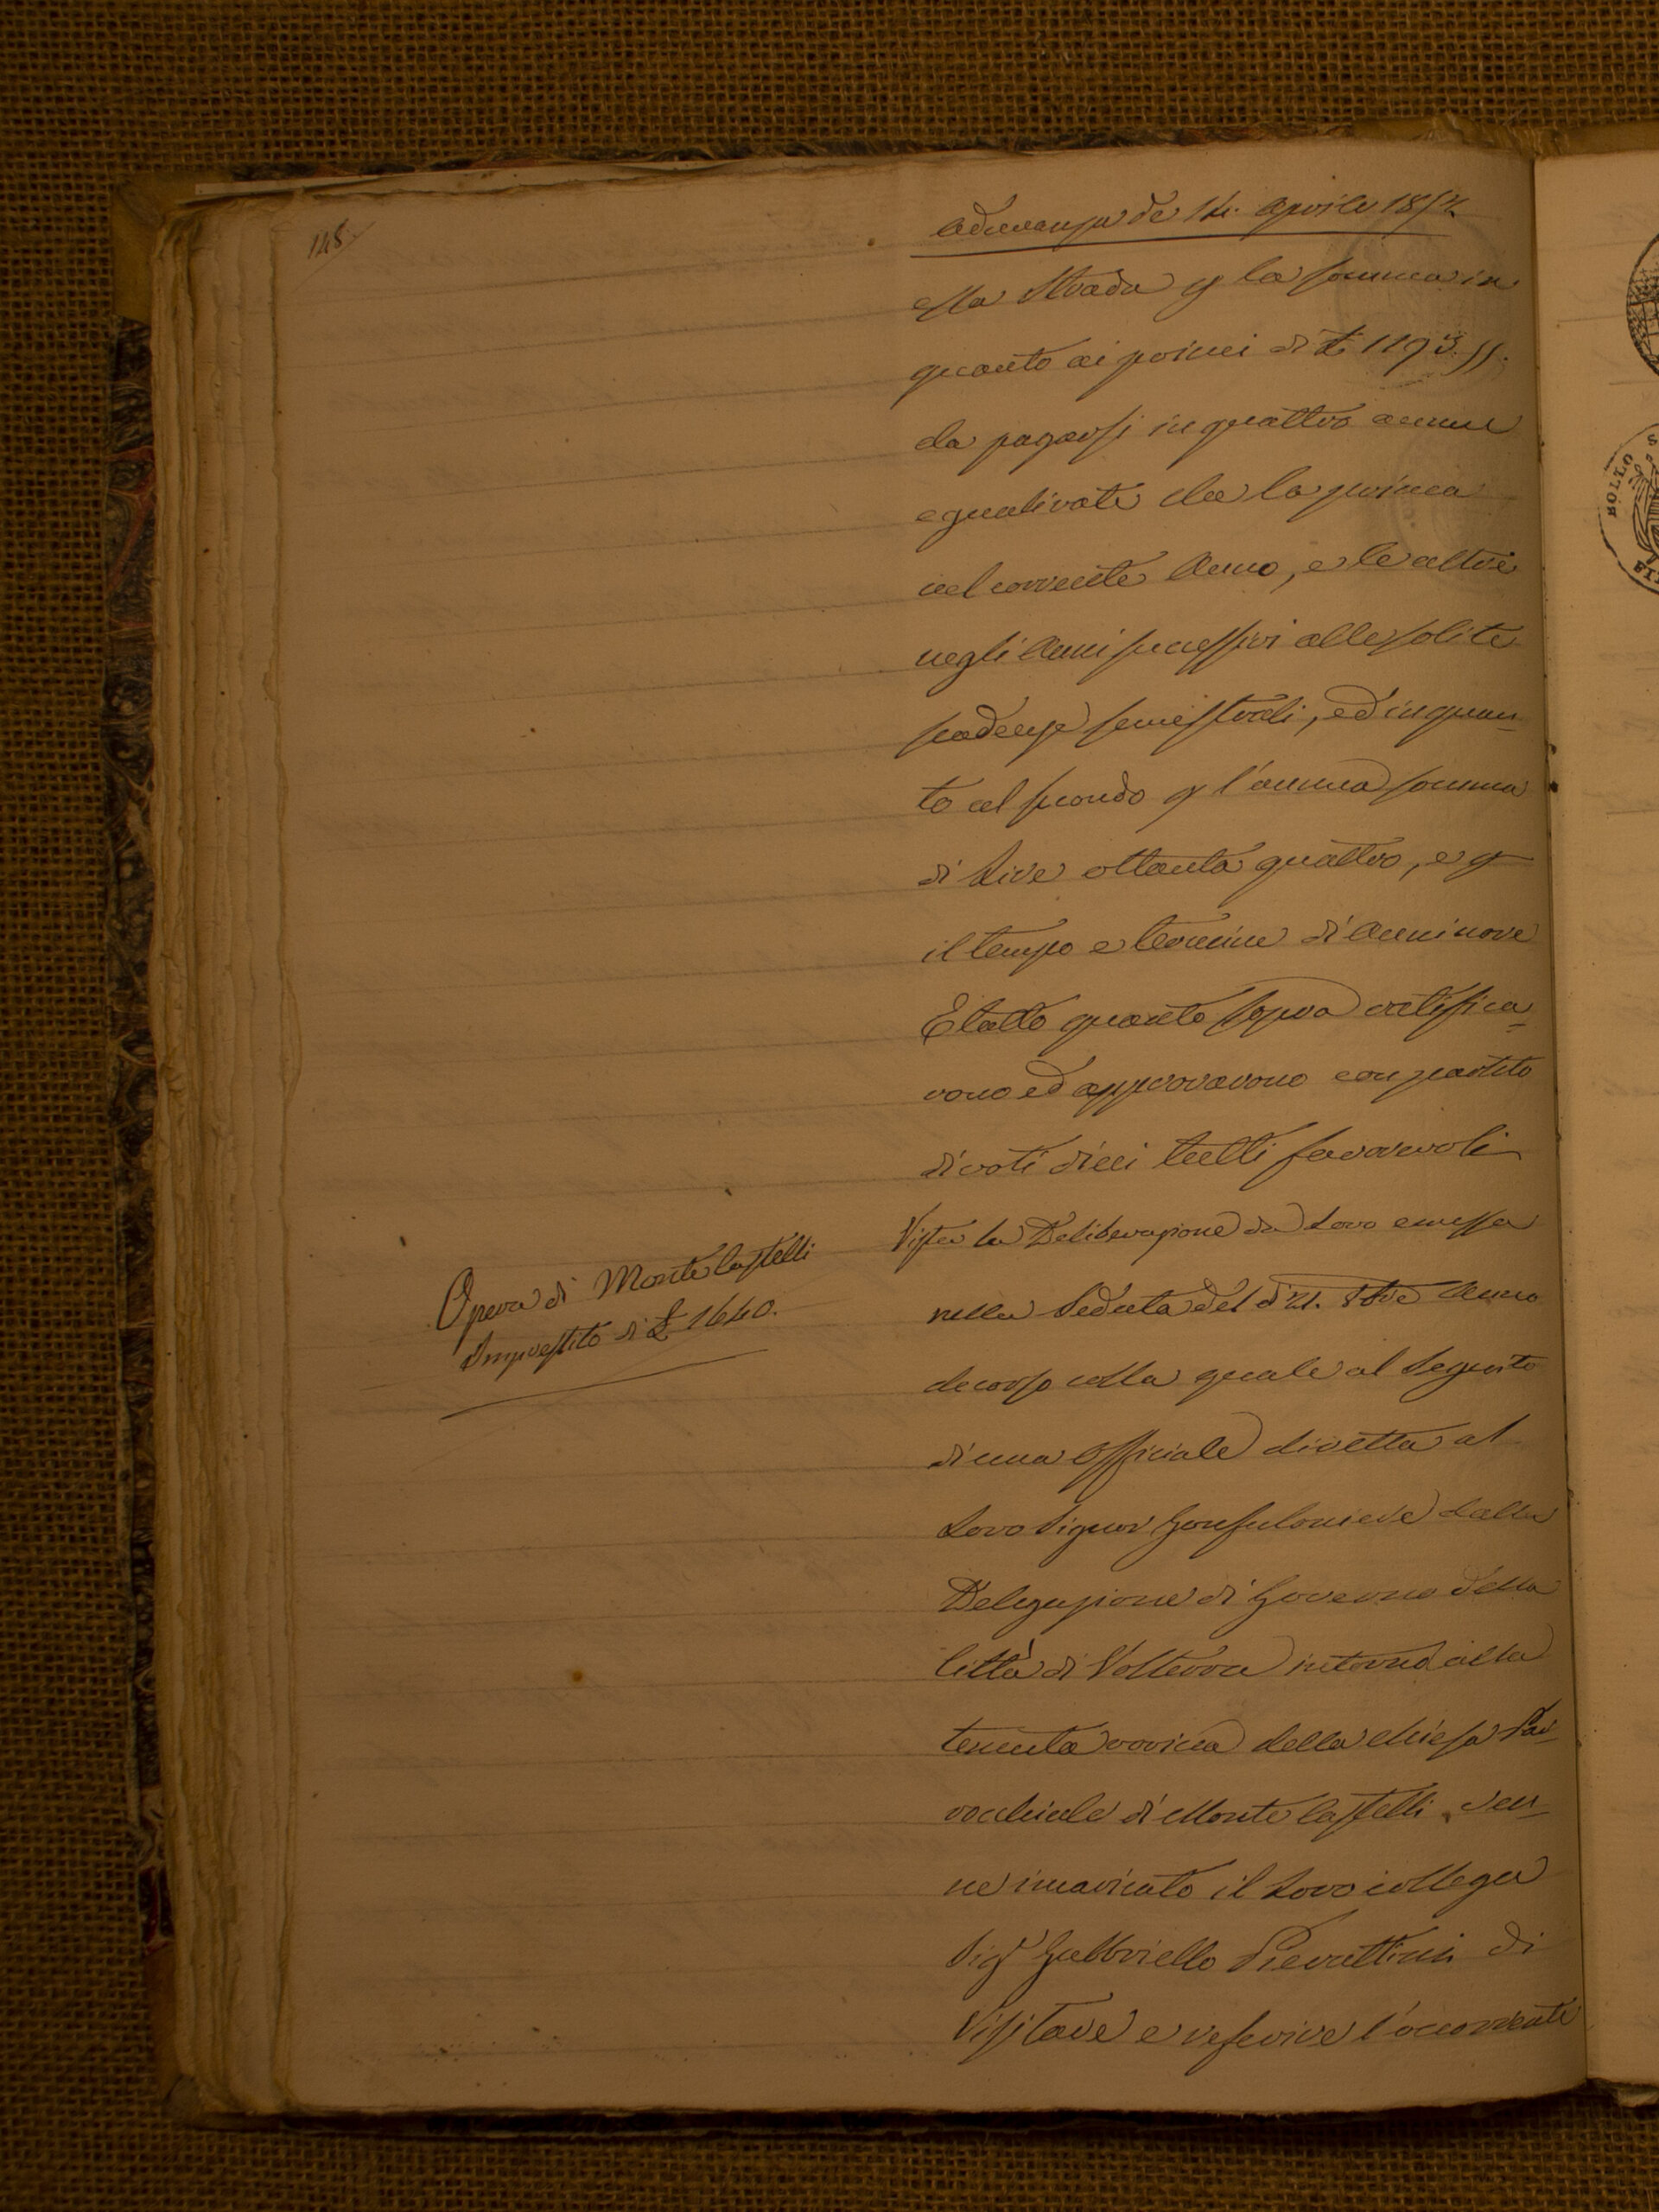 148.
Adunanza de 14. Aprile 1854
essa Strada p la somma in
quanto ai primi di £ 1193.
da pagarsi in quattro annue
egualirate la prima
nel corrente Anno, e le altre
negli Anni successivi alle solite
scadenze semestrali, ed inquan-
to al secondo p l'annua somma
di Lire ottanta quattro, e p
il tempo e termine di Anni nove
E tutto quanto sopra ratifica-
rono ed approvarono con partito
di voti dieci tutti favorevoli
Vista la Deliberazione da Loro emessa
nella Seduta del dì 21. Anno
decorso colla quale al seguito
di una Officiale diretta al
Loro Signor Gonfaloniere dalla
Delegazione di Governo della
Città di Volterra intorno alla
temuta rovina della Chiesa Par-
rocchiale di Monte Castelli ven-
ne incaricato il Loro collega
Sigr Gabbriello Pierattini di
Visitare e referire l'occorrente
Opera di Monte Castelli
Imprestito di £ 1640.